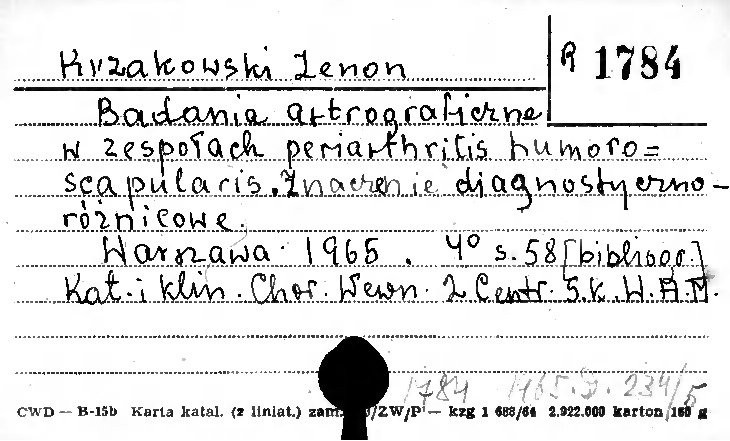 Krzakowski Zenon
R 1784
Badania artrograficzne
w zespołach periarthritis humoro=
scapularis. Znaczenie diagnostyczno-
różnicowe.
Warszawa 1965. 4° s. 58 [bibliogr.]
Kat. i Klin. Chor. Wewn. 2 Centr. S.K. W.A.M.
1784 1965.I. 234/5
CWD — B-15b Karta katal. (z liniat.) zam. /ZW/P — kzg 1 688/64 2.922.000 karton 160 g